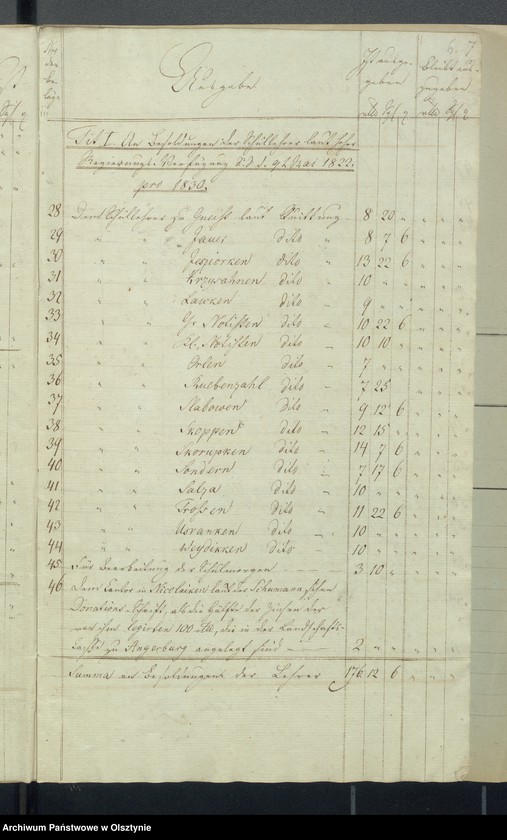 7
No der Beläge
Ausgabe
Ist ausgegeben
Bleibt auszugeben
rtlr Sgl. ₰ rtlr Sgl. ₰
Tit. I. An Besoldungen der Schullehrer laut hoher
Regierungs-Verfügung d.d. 9t. Mai 1822.
pro 1830.
28 Dem Schullehrer zu Gneist laut Quittung 8 20 "
29 " " Jauer dito " 8 7 6
30 " " Jesziorken dito " 13 22 6
31 " " Krzywahnen dito " 10 " "
32 " " Lawken dito " 9 " "
33 " " Gr. Notisten dito " 10 22 6
34 " " Kl. Notisten dito " 10 10 "
35 " " Orlen dito " 7 " "
36 " " Ruebenzahl dito " 7 25
37 " " Slabowen dito " 9 12 6
38 " " Skoppen dito " 12 15 "
39 " " Skorupken dito " 14 7 6
40 " " Sondern dito " 7 17 6
41 " " Salza dito " 10 " "
42 " " Trossen dito " 11 22 6
43 " " Usranken dito " 10 " "
44 " " Weydicken dito " 10 " "
45 Für Bearbeitung der Schulmorgen 3 10 "
46 Dem Cantor in Nicolaiken laut der Schumannschen
Donations-Schrift, als die Hälfte der Zinsen der
von ihm legirten 100 rtlr., die in der Landschafts-
Casse zu Angerburg angelegt sind 2 " "
Summa an Besoldungen der Lehrer 176 12 6
Archiwum Państwowe w Olsztynie